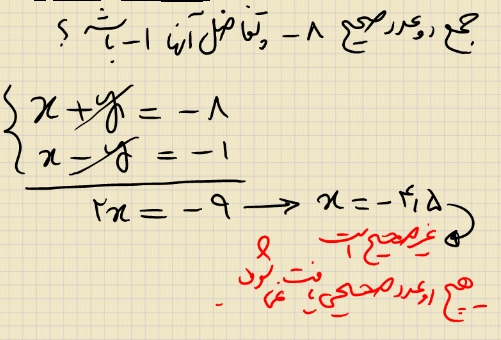 جمع دو عدد صحیح ۸- و تفاضل آنها ۱- باشد ؟
x + y = -۸
x - y = -۱
۲x = -۹ → x = -۴,۵
غیر صحیح است
هیچ دو عدد صحیحی یافت نمی شود